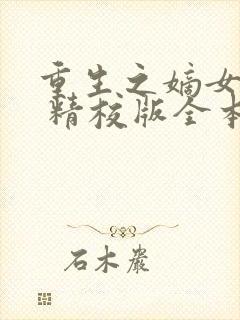 重生之嫡女
精校版全本
石木岩